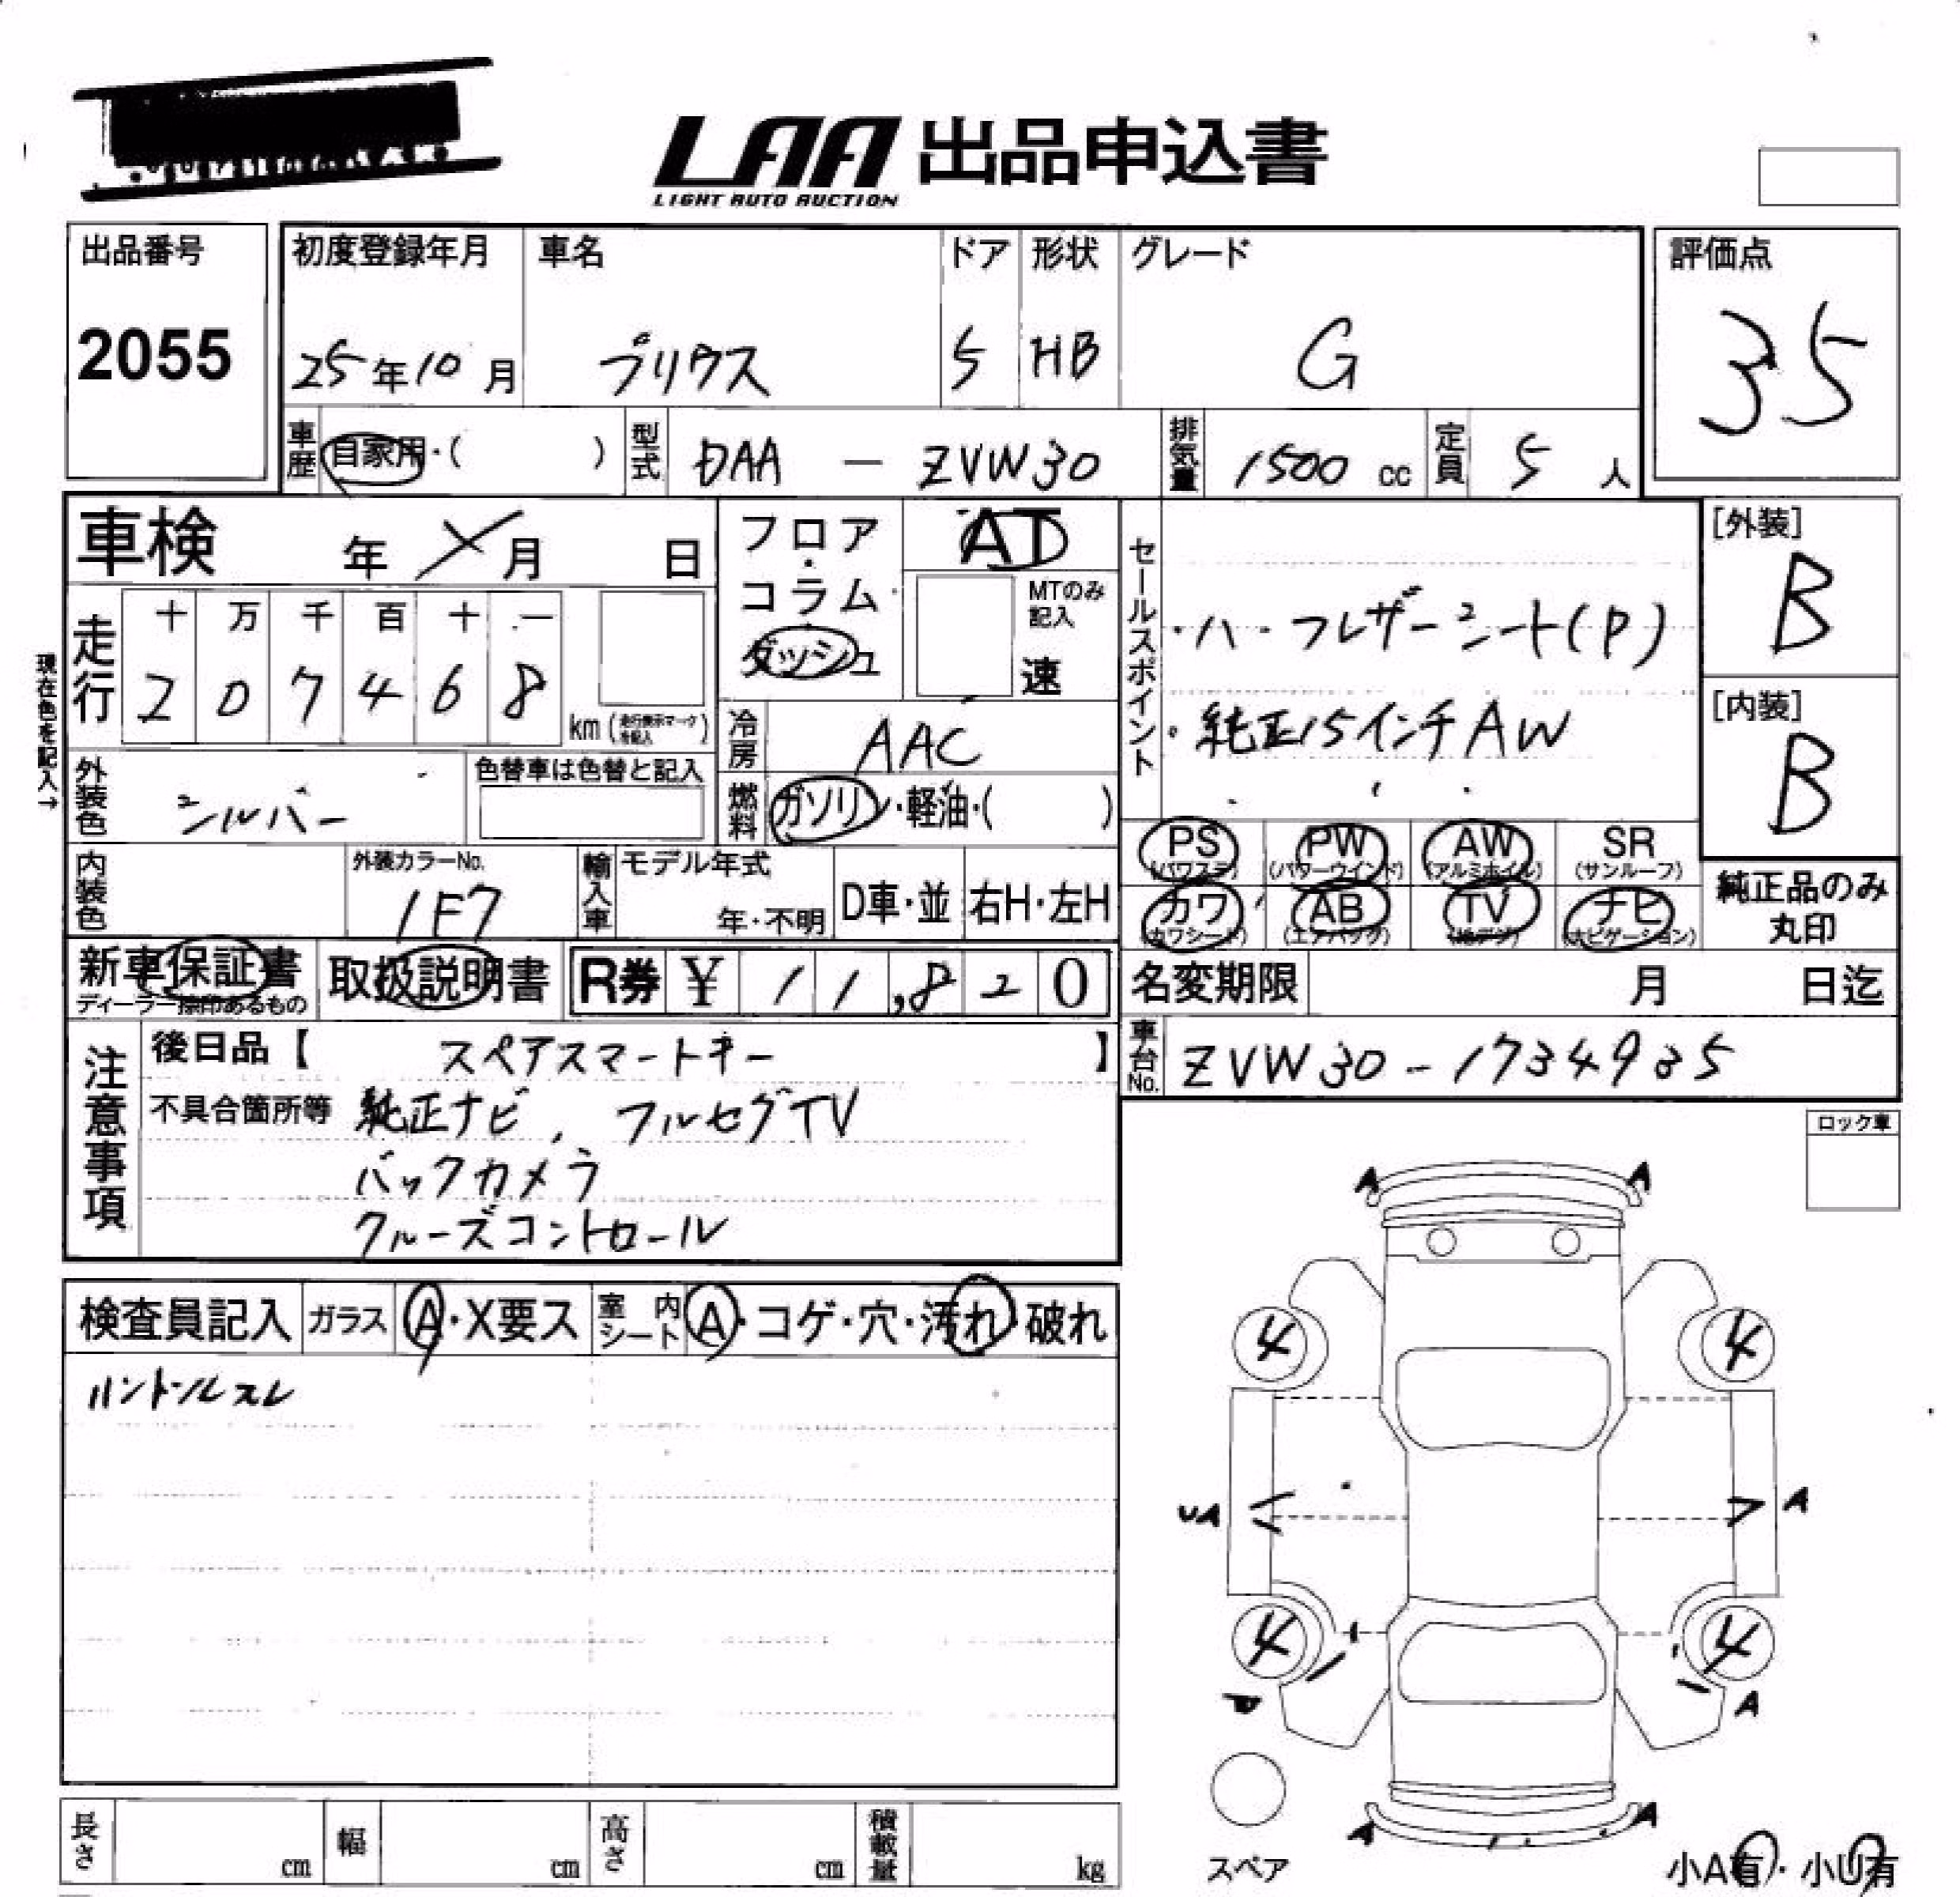 LAA 出品申込書
LIGHT AUTO AUCTION
出品番号 初度登録年月 車名 ドア 形状 グレード 評価点
2055 25年10月 プリウス 5 HB G 35
車歴 自家用・( ) 型式 DAA - ZVW30 排気量 1500 cc 定員 5 人
車検 年 月 日
フロア・コラム・ダッシュ
AT
MTのみ記入
速
現在色を記入→
走行 十 万 千 百 十 一
2 0 7 4 6 8 km (走行表示マークを記入)
冷房 AAC
セールスポイント
・ハーフレザーシート(P)
・純正15インチAW
[外装] B
[内装] B
外装色 シルバー 色替車は色替と記入
燃料 ガソリン・軽油・( )
内装色 外装カラーNo. 1F7 輸入車 モデル年式 年・不明 D車・並 右H・左H
PS (パワステ) PW (パワーウインド) AW (アルミホイル) SR (サンルーフ)
カワ (カワシート) AB (エアバッグ) TV (地デジ) ナビ (ナビゲーション)
純正品のみ丸印
新車保証書 ディーラー捺印あるもの 取扱説明書 R券 ¥ 11,820
名変期限 月 日迄
車台No. ZVW30-1734935
注意事項
後日品【 スペアスマートキー 】
不具合箇所等 純正ナビ、フルセグTV
バックカメラ
クルーズコントロール
ロック車
検査員記入 ガラス A・X要ス 室内シート A・コゲ・穴・汚れ・破れ
ハンドルスレ
A A
4 4
UA A
4 4
A
A A
スペア
小A有・小U有
長さ cm 幅 cm 高さ cm 積載量 kg